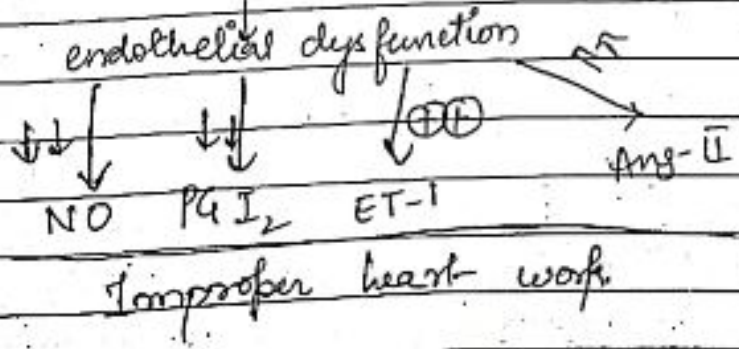 endothelial dysfunction
↓↓ ↓↓ ⊕⊕ ↑↑
NO PGI₂ ET-1 Ang-II
Improper heart work